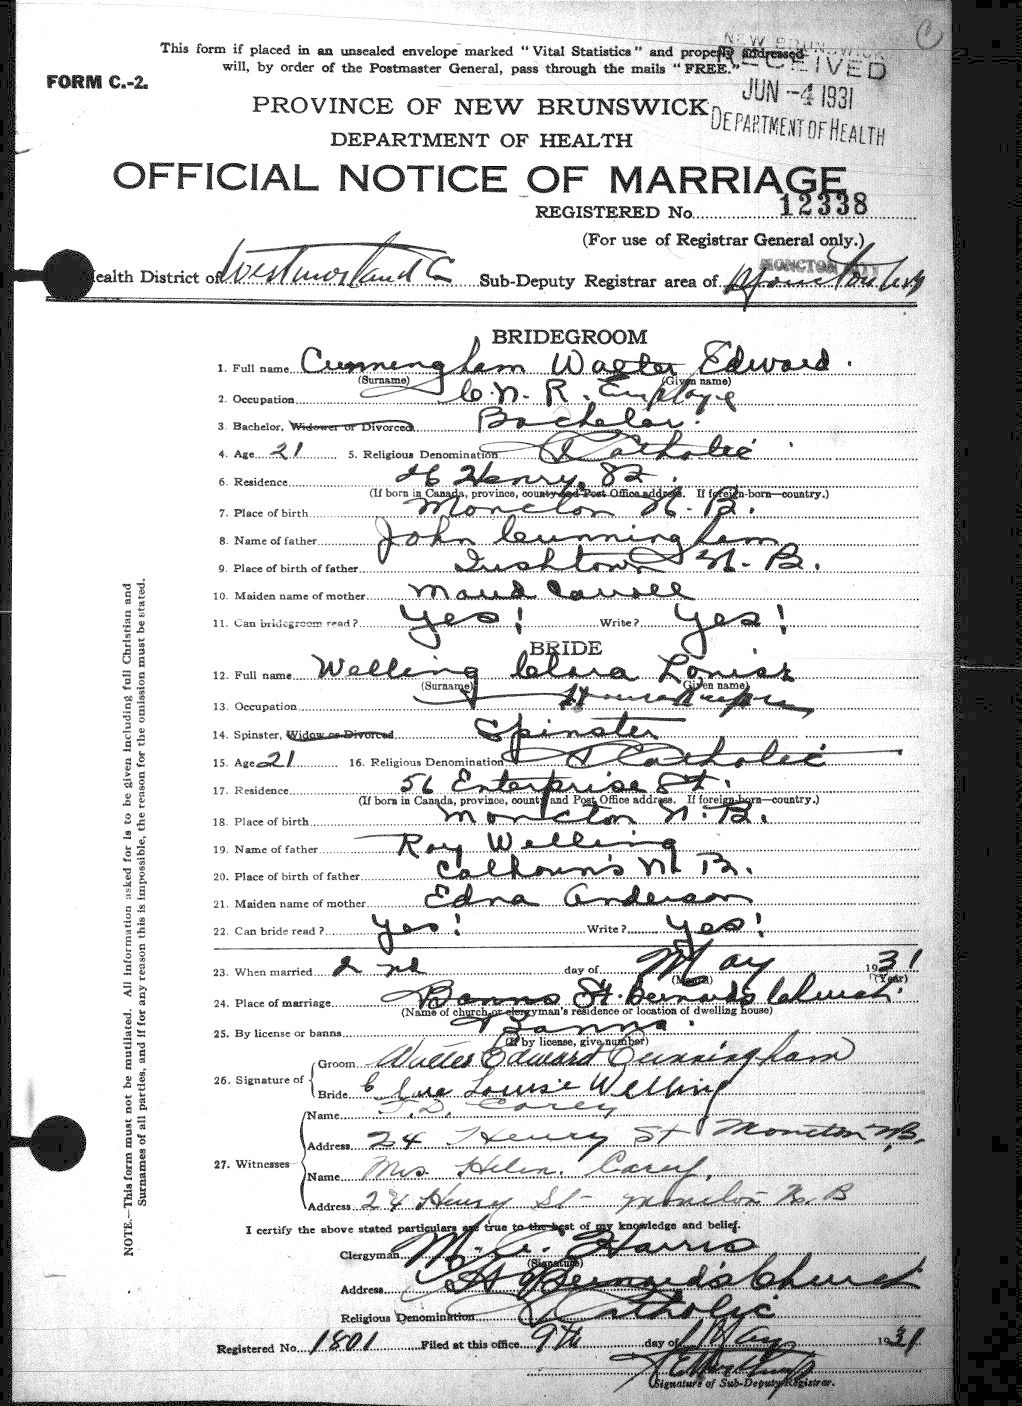 This form if placed in an unsealed envelope marked "Vital Statistics" and properly addressed
will, by order of the Postmaster General, pass through the mails "FREE."
NEW BRUNSWICK
RECEIVED
JUN -4 1931
DEPARTMENT OF HEALTH
FORM C.-2.
PROVINCE OF NEW BRUNSWICK
DEPARTMENT OF HEALTH
OFFICIAL NOTICE OF MARRIAGE
REGISTERED No. 12338
(For use of Registrar General only.)
MONCTON CITY
Health District of Westmorland Co Sub-Deputy Registrar area of Moncton
BRIDEGROOM
1. Full name Cunningham Walter Edward.
(Surname) (Given name)
2. Occupation C. N. R. Employe
3. Bachelor, Widower or Divorced Bachelor.
4. Age 21 5. Religious Denomination R Catholic
6. Residence Henry St.
(If born in Canada, province, county and Post Office address. If foreign-born—country.)
7. Place of birth Moncton N. B.
8. Name of father John Cunningham
9. Place of birth of father Irishtown N. B.
10. Maiden name of mother Maud Carroll
11. Can bridegroom read? Yes! Write? Yes!
BRIDE
12. Full name Welling Clara Louise
(Surname) (Given name)
13. Occupation
14. Spinster, Widow or Divorced Spinster
15. Age 21 16. Religious Denomination R Catholic
17. Residence 56 Enterprise St.
(If born in Canada, province, county and Post Office address. If foreign-born—country.)
18. Place of birth Moncton N. B.
19. Name of father Roy Welling
20. Place of birth of father Calhouns N. B.
21. Maiden name of mother Edna Anderson
22. Can bride read? Yes! Write? Yes!
23. When married 2nd day of May 1931
(Month) (Year)
24. Place of marriage Banns St. Bernards Church.
(Name of church or clergyman's residence or location of dwelling house)
25. By license or banns Banns.
(If by license, give number)
26. Signature of
Groom Walter Edward Cunningham
Bride Clara Louise Welling
27. Witnesses
Name Carey
Address 24 Henry St Moncton N.B.
Name Mrs. Helen Carey,
Address 24 Henry St - Moncton N. B
I certify the above stated particulars are true to the best of my knowledge and belief.
Clergyman Harris
(Signature)
Address St Bernard's Church
Religious Denomination R Catholic
Registered No. 1801 Filed at this office 9th day of May 1931
Signature of Sub-Deputy Registrar.
NOTE.—This form must not be mutilated. All information asked for is to be given including full Christian and
Surnames of all parties, and if for any reason this is impossible, the reason for the omission must be stated.